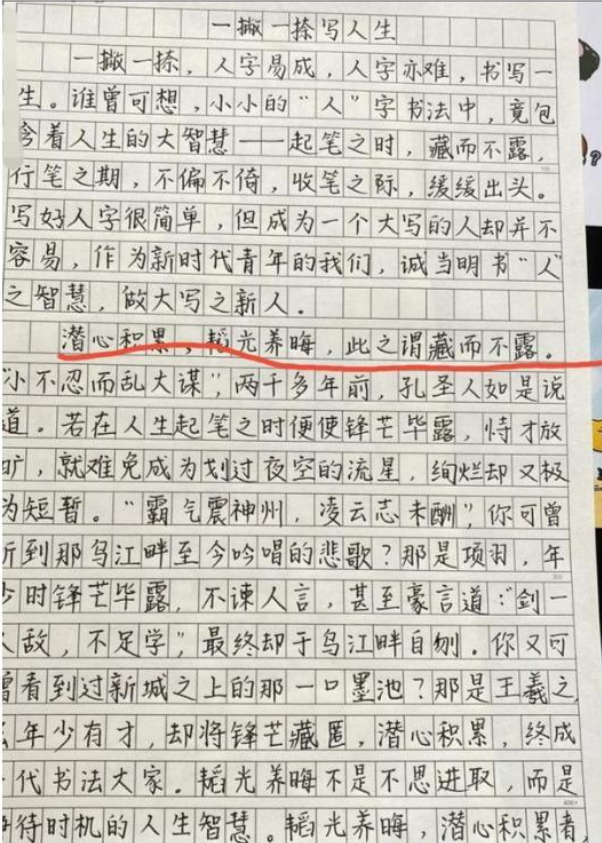 一撇一捺写人生
一撇一捺，人字易成，人字亦难，书写一
生。谁曾可想，小小的“人”字书法中，竟包
含着人生的大智慧——起笔之时，藏而不露，
行笔之期，不偏不倚，收笔之际，缓缓出头。
写好人字很简单，但成为一个大写的人却并不
容易，作为新时代青年的我们，诚当明书“人”
之智慧，做大写之新人。
潜心积累，韬光养晦，此之谓藏而不露。
“小不忍而乱大谋”，两千多年前，孔圣人如是说
道。若在人生起笔之时便使锋芒毕露，恃才放
旷，就难免成为划过夜空的流星，绚烂却又极
为短暂。“霸气震神州，凌云志未酬”，你可曾
听到那乌江畔至今吟唱的悲歌？那是项羽，年
少时锋芒毕露，不谏人言，甚至豪言道：“剑一
人敌，不足学”，最终却于乌江畔自刎。你又可
曾看到过新城之上的那一口墨池？那是王羲之，
年少有才，却将锋芒藏匿，潜心积累，终成
一代书法大家。韬光养晦不是不思进取，而是
待时机的人生智慧。韬光养晦，潜心积累者，